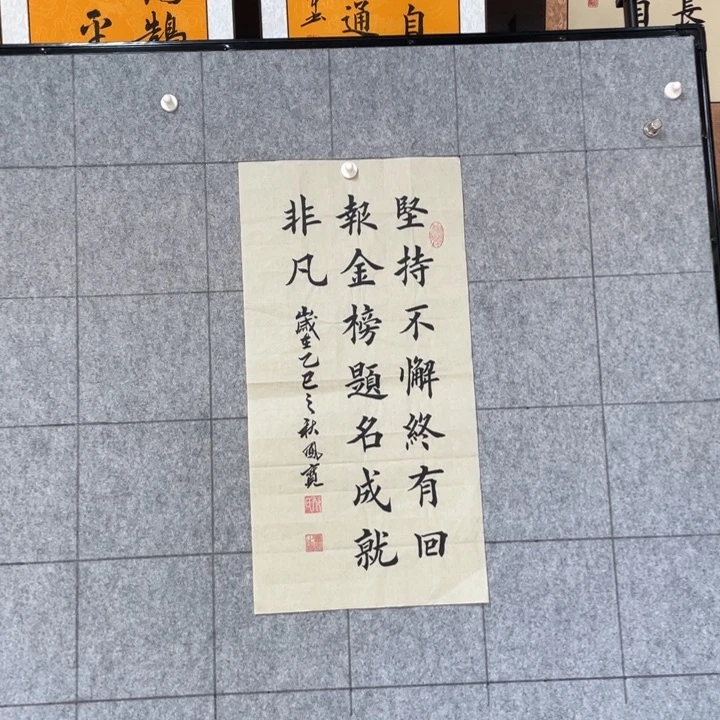 堅持不懈終有回
報金榜題名成就
非凡
歲在乙巳之秋鳳寶
鵠
平
通
自
長